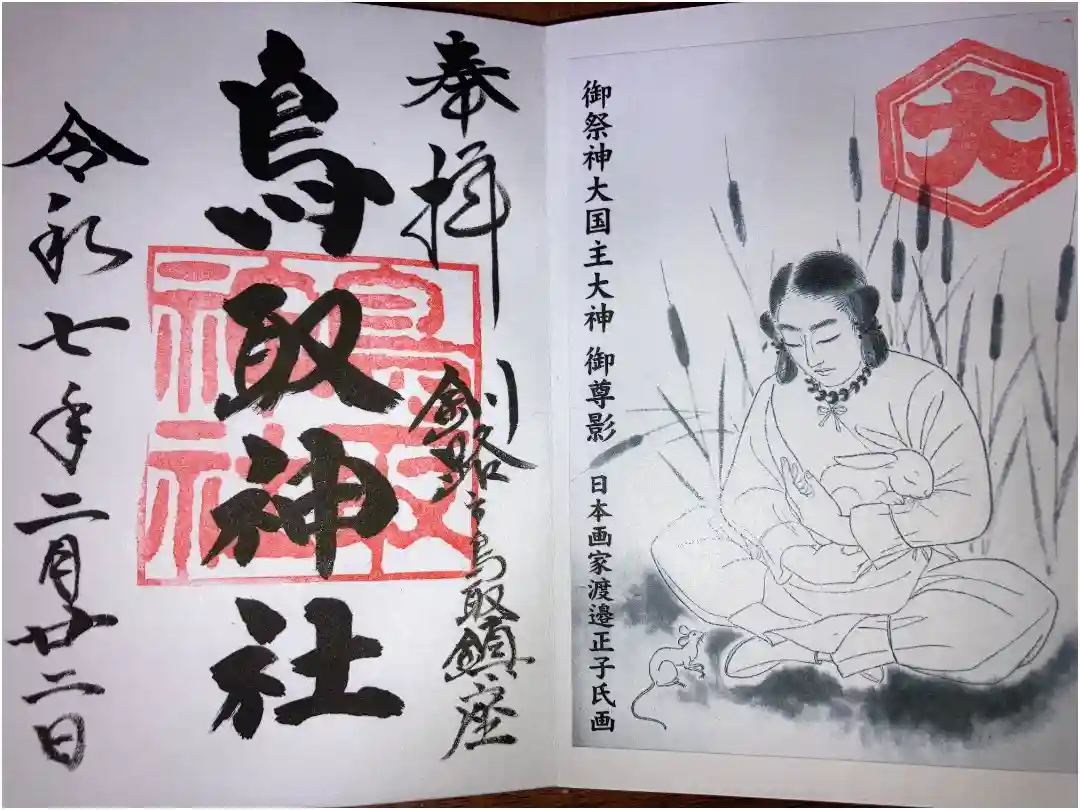 大
御祭神大国主大神 御尊影 日本画家渡邉正子氏画
奉拝
釧路市鳥取鎮座
鳥取神社
鳥取
神社
令和七年二月廿二日